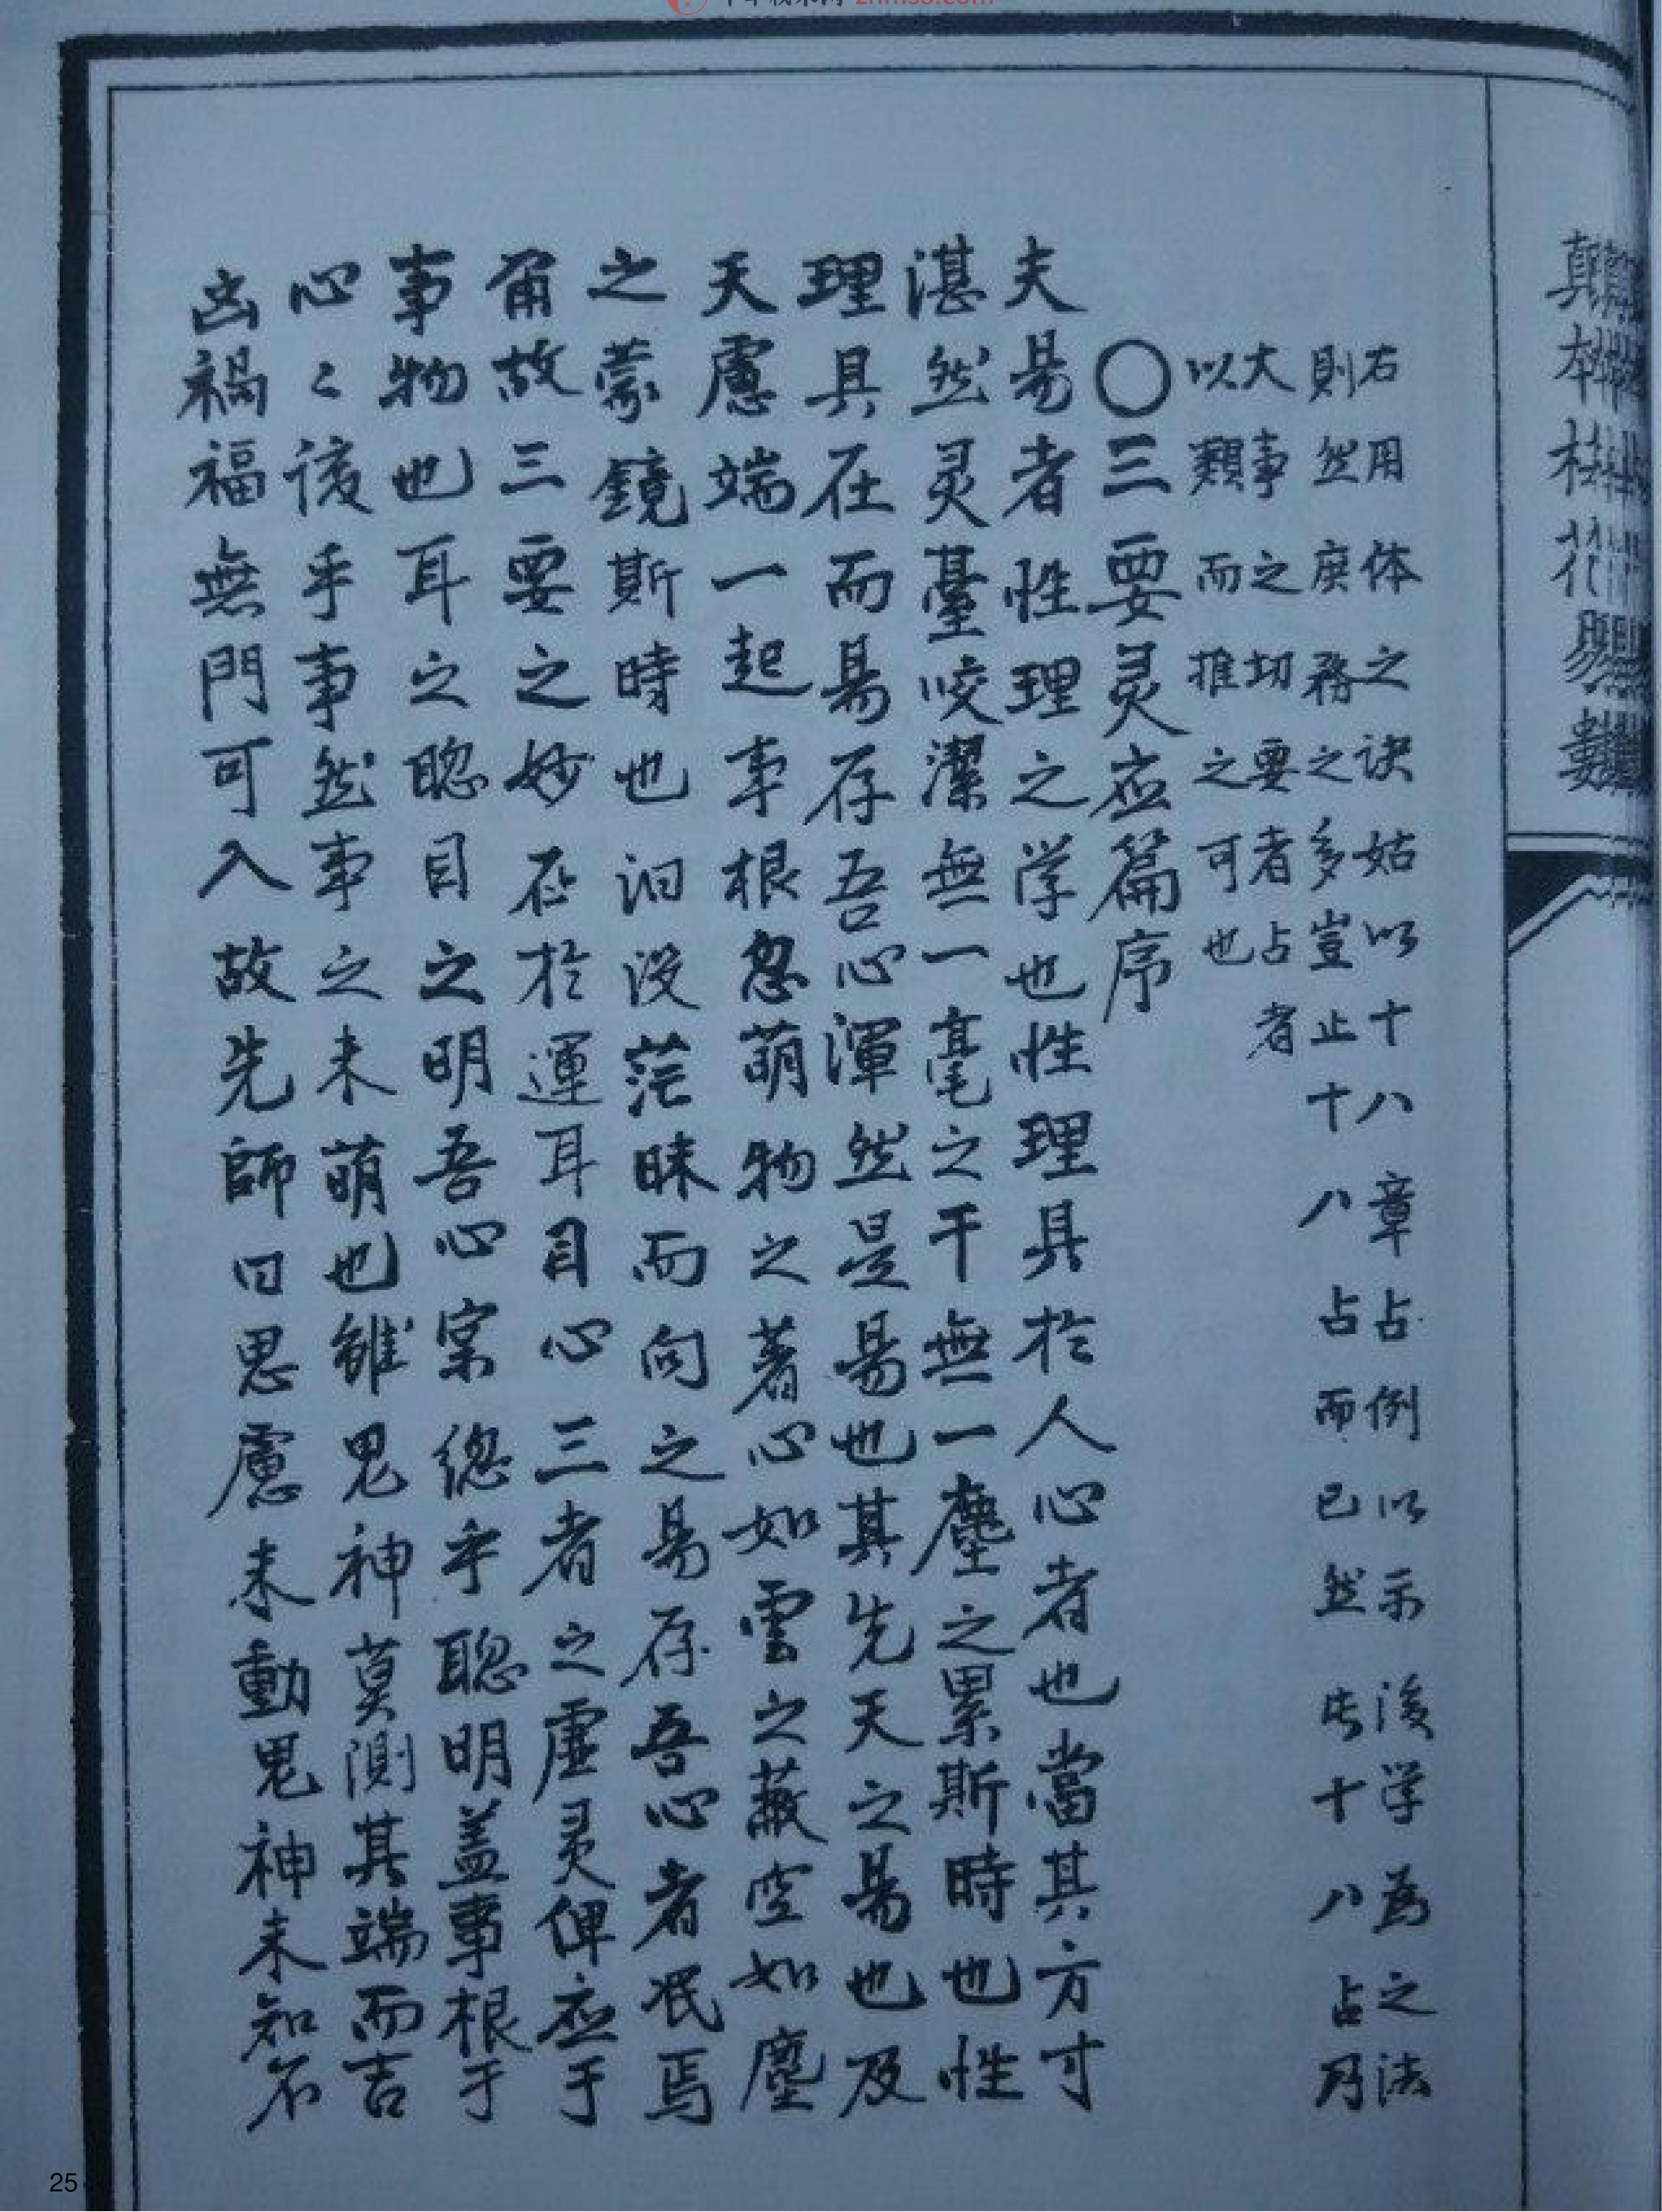 真本梅花易數
右用体之訣姑以十八章占例以示後学為之法
則然庶務之多豈止十八占而已然此十八占乃
大事之切要者占者
以類而推之可也
〇三要灵应篇序
夫易者性理之学也性理具於人心者也當其方寸
湛然灵臺咬潔無一毫之干無一塵之累斯時也性
理具在而易存吾心渾然是易也其先天之易也及
天慮端一起事根忽萌物之著心如雲之蔽空如塵
之蒙鏡斯時也汩没茫昧而向之易存吾心者泯焉
甭故三要之妙在於運耳目心三者之虛灵俾应于
事物也耳之聡目之明吾心宲総乎聡明盖事根于
心心後乎事然事之未萌也雖鬼神莫測其端而吉
凶禍福無門可入故先師曰思慮未動鬼神未知不
25